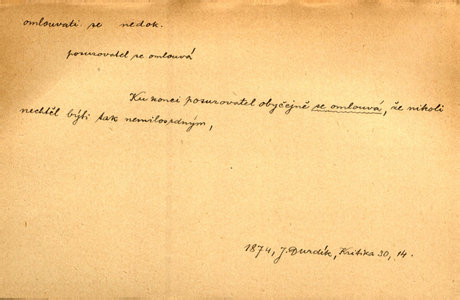 omlouvati se nedok.
posuzovatel se omlouvá
Ku konci posuzovatel obyčejně se omlouvá, že nikoli
nechtěl býti tak nemilosrdným,
1874, J. Durdík, Kritika 30, 14.